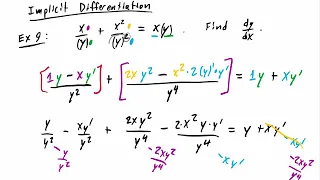 Implicit Differentiation
Ex 9: x/(y) + x²/(y)² = x(y) Find dy/dx.
[1y - xy' / y²] + [2xy² - x²·2(y)'·y' / y⁴] = 1y + xy'
y/y² - xy'/y² + 2xy²/y⁴ - 2·x²y·y'/y⁴ = y + xy'
-y/y² -2xy²/y⁴ -xy' -xy' -y/y² -2xy²/y⁴